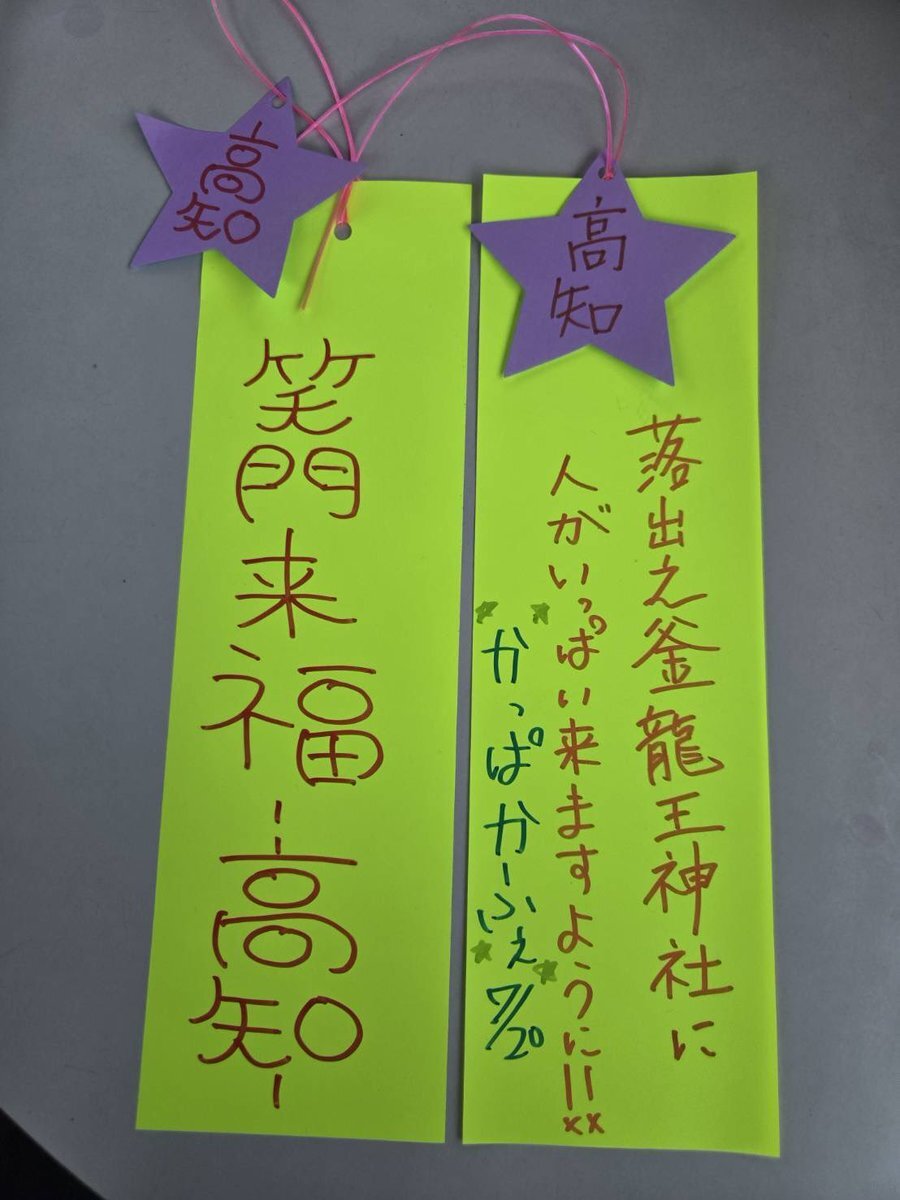 高知
笑門来福-高知-
高知
落出え釜龍王神社に
人がいっぱい来ますように!!
かっぱかーふぇ 7/20